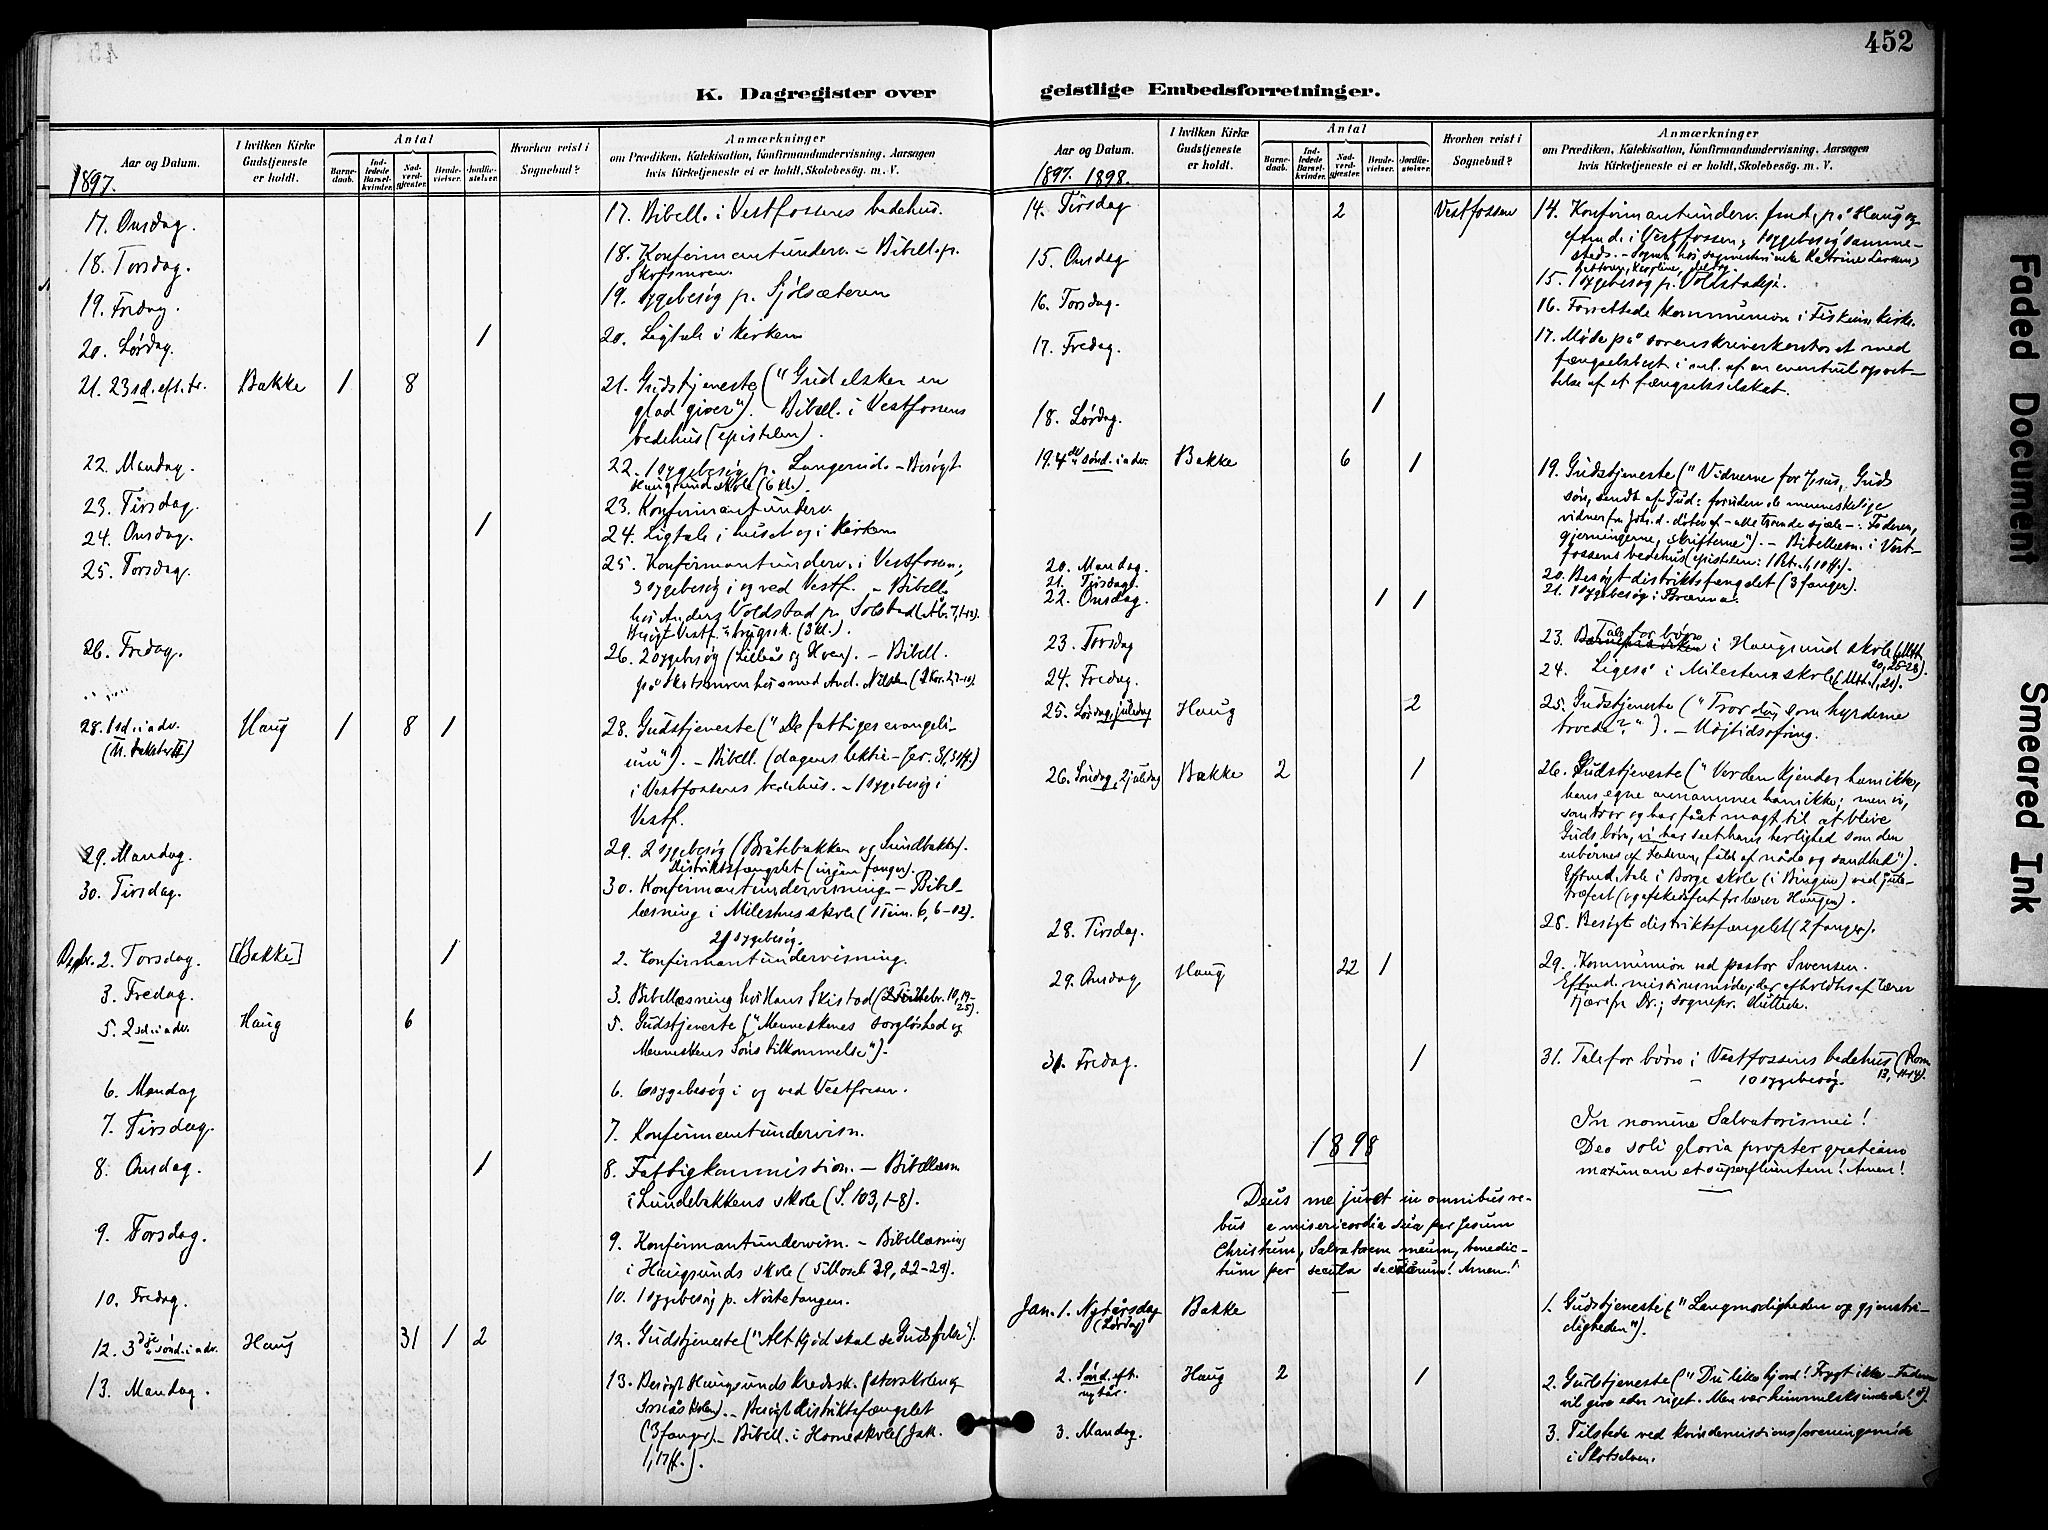 452
K. Dagregister over
geistlige Embedsforretninger.
Aar og Datum.
1897.
I hvilken Kirke
Gudstjeneste
er holdt.
Antal
Barne-
daab.
Ind-
ledede
Barsel-
kvinder.
Nad-
verd-
gjester.
Brude-
vielser.
Jordfæ-
stelser.
Hvorhen reist i
Sognebud?
Anmærkninger
om Prædiken, Katekisation, Konfirmandundervisning, Aarsagen
hvis Kirketjeneste ei er holdt, Skolebesøg. m. V.
17. Onsdag. 17. Bibell. i Vestfossens bedehus.
18. Torsdag. 18. Konfirmantunderv. – Bibell. p.
Skotsmoen.
19. Fredag. 19. sygebesøg p. Sjølsæteren
20. Lørdag. 1 20. Ligtale i kirken
21. 23 sd. eft. tr. Bakke 1 8 21. Gudstjeneste ("Gud elsker en
glad giver"). Bibell. i Vestfossens
bedehus (epistelen).
22. Mandag. 22. 1 sygebesøg p. Langerud. – Besøgt
Haugsund skole (6 kl.).
23. Tirsdag. 23. Konfirmantunderv.
24. Onsdag. 1 24. Ligtale i huset og i kirken
25. Torsdag. 25. Konfirmantunderv. i Vestfossen;
3 sygebesøg i og ved Vestf. – Bibell.
hos Anders Voldstad p. Solstad (Åb. 7, 1-12).
Besøgt Vestf. brugssk. (3 kl.).
26. Fredag. 26. 2 sygebesøg (Lilleås og Hoen). – Bibell.
på Skotsmoen hos med And. Nilsen
28. 1 sd. i adv. Haug 1 8 1 28. Gudstjeneste ("De fattiges evangeli-
(II. tekster II)
um"). – Bibell. (dagens lektie – Jer. 31, 31 ff.)
i Vestfossens bedehus. – 1 sygebesøg i
Vestf.
29. Mandag. 29. 2 sygebesøg (Bråtebakken og Lundbakke).
Distriktsfængslet (ingen fanger).
30. Tirsdag. 30. Konfirmantundervisning. – Bibel-
læsning i Milesteens skole (1 Tim. 6, 6-12).
21 sygebesøg.
Dzbr. 2. Torsdag. [Bakke] 1 2. Konfirmantundervisning.
3. Fredag. 3. Bibellæsning hos Hans Skistad (Hebr. 10, 19-
25).
5. 2 sd. i adv. Haug 6 5. Gudstjeneste ("Menneskenes sorgløshed og
Menneskens Søns tilkommelse").
6. Mandag 6. 6 sygebesøg i og ved Vestfossen.
7. Tirsdag. 7. Konfirmantundervisn.
8. Onsdag. 1 8. Fattigkommission. – Bibellæsn.
i Lundebakkens skole (S. 103, 1-8).
9. Torsdag. 9. Konfirmantundervisn. – Bibellæsning
i Haugsunds skole (5 Moseb 32, 22-29).
10. Fredag. 10. 1 sygebesøg p. Nøstetangen.
12. 3dje sønd. i adv. Haug 31 1 2 12. Gudstjeneste ("Alt kjød skal se Guds frelse").
13. Mandag. 13. Besøgt Haugsunds kredssk. (storskolen og
småskolen). – Besøgt distriktsfængslet
(3 fanger). – Bibell. i Horneskole (Jak.
1, 17 ff.).
Aar og Datum.
1897. 1898.
I hvilken Kirke
Gudstjeneste
er holdt.
Antal
Barne-
daab.
Ind-
ledede
Barsel-
kvinder.
Nad-
verd-
gjester.
Brude-
vielser.
Jordfæ-
stelser.
Hvorhen reist i
Sognebud?
Anmærkninger
om Prædiken, Katekisation, Konfirmandundervisning, Aarsagen
hvis Kirketjeneste ei er holdt, Skolebesøg. m. V.
14. Tirsdag 2 Vestfossen 14. Konfirmantunderv. fmd. på Haug og
eftmd. i Vestfossen; 1 sygebesøg samme-
steds. –
15. Onsdag 15. 1 sygebesøg p. Voldstadeje.
16. Torsdag. 16. Forrettede kommunion i Fiskum kirke.
17. Fredag. 17. Møde på sorenskriverkontoret med
fængselsbest. i anl. af en eventuel opret-
telse af et fængselsselskab.
18. Lørdag. 1
19. 4de sønd. i adv. Bakke 6 1 19. Gudstjeneste ("Vidnerne for Jesus, Guds
søn, sendt af Gud: foruden de menneskelige
vidner fra Joh. d. døber af – alle troende sjæle –: Faderen,
gjerningerne, skrifterne"). – Bibellæsn. i Vest-
fossens bedehus (epistelen: 1 Pet. 1, 10 ff.).
20. Mandag. 20. Besøgt distriktsfængslet (3 fanger).
21. Tirsdag. 21. 1 sygebesøg i Brærena.
22. Onsdag. 1 1
23. Torsdag 23. Tale for børn i Haugsund skole (Mtt.
20, 25-28).
24. Fredag. 24. Ligeså i Milesteens skole (Mtt. 1, 21).
25. Lørdag, juledag Haug 2 25. Gudstjeneste ("Tror du, som hyrderne
troede?"). – Højtidsofring.
26. Søndag, 2 juledag Bakke 2 1 26. Gudstjeneste ("Verden kjender ham ikke,
hans egne annammer ham ikke; men vi,
som tror og har fået magt til at blive
Guds børn, vi har seet hans herlighed som den
enbårnes af Faderen, fuld af nåde og sandhed").
Eftmd. tale i Borge skole (i Bingen) ved jule-
træfest (og afskedsfest for lærer Haugen).
28. Tirsdag. 28. Besøgte distriktsfængslet (2 fanger).
29. Onsdag, Haug 22 1 29. Kommunion ved pastor Swensen.
Eftmd. missionsmøde, der afholdtes af lærer
Fjære fra Dr.; sognepr. sluttede.
31. Fredag. 1 31. Tale for børn i Vestfossens bedehus (Rom.
13, 11-14).
– 10 sygebesøg.
In nomine Salvatoris mei!
1898
Deo soli gloria propter gratiam
maximam et superfluentem! Amen!
Deus me juvet in omnibus re-
bus e misericordia sua per Jesum
Christum, Salvatorem meum, benedic-
tum per secula seculorum! Amen!
Jan. 1. Nytårsdag Bakke 1. Gudstjeneste ("Langmodigheden og gjenstri-
(Lørdag)
digheden").
2. Sønd. eft. Haug 2 1 2. Gudstjeneste ("Du lille hjord! Frygt ikke – Faderen
nytår.
vil give eder riget. Men vær himmelsksindede!").
3. Mandag. 3. Tilstede ved kvindemissionsforeningsmøde
i Skotselven.
Faded Document
Smeared Ink